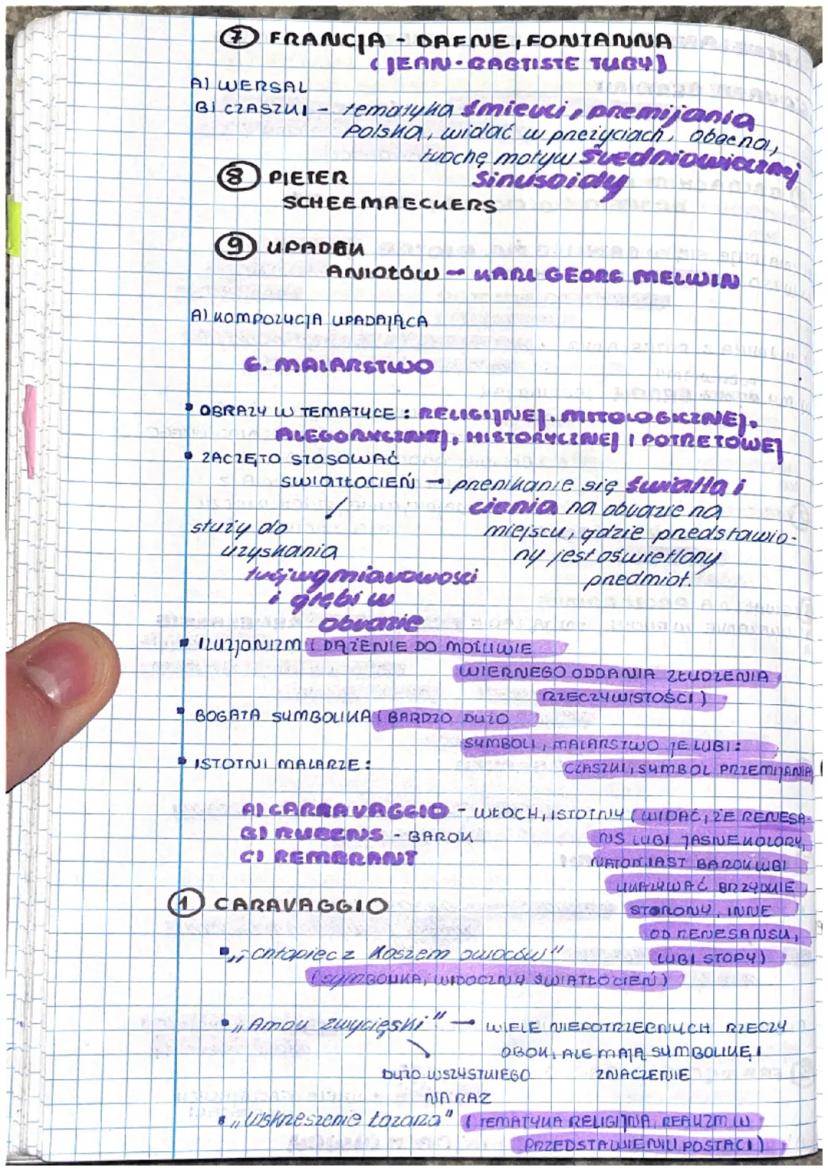 ⑦ FRANCJA - DAFNE, FONTANNA
(JEAN-BABTISTE TUBY)
A) WERSAL
B) CZASZKI - tematyka śmierci, premijania
Polska, widać w preżyciach, obecna,
trochę motyw średniowiecznej
sinusoidy
⑧ PIETER
SCHEEMAECKERS
⑨ UPADEK
ANIOŁÓW - KARL GEORG MELWIN
A) KOMPOZYCJA UPADAJĄCA
6. MALARSTWO
• OBRAZY W TEMATYCE: RELIGIJNEJ, MITOLOGICZNEJ,
ALEGORYCZNEJ, HISTORYCZNEJ I POTRETOWEJ
• ZACZĘTO STOSOWAĆ
ŚWIATŁOCIEŃ → prenikanie się światła i
cienia na obrazie na
miejscu, gdzie predstawio-
ny jest oświetlony
predmiot.
służy do
uzyskania
trójwymiarowości
i głębi w
obrazie
• ILUZJONIZM (DĄŻENIE DO MOŻLIWIE
WIERNEGO ODDANIA ZŁUDZENIA
RZECZYWISTOŚCI)
• BOGATA SYMBOLIKA (BARDZO DUŻO
SYMBOLI, MALARSTWO JE LUBI:
CZASZKI, SYMBOL PRZEMIJANIA)
• ISTOTNI MALARZE:
A) CARRAVAGGIO - WŁOCH, ISTOTNY (WIDAĆ, ŻE RENESA-
NS LUBI JASNE KOLORY,
NATOMIAST BAROK LUBI
UKAZYWAĆ BRZYDKIE
STORONY, INNE
OD RENESANSU,
LUBI STOPY)
B) RUBENS - BAROK
C) REMBRANT
① CARAVAGGIO
• "Chłopiec z koszem owoców"
(SYMBOLIKA, WIDOCZNY ŚWIATŁOCIEŃ)
• "Amor zwycięski" → WIELE NIEPOTRZEBNYCH RZECZY
OBOK, ALE MAJĄ SYMBOLIKĘ I
ZNACZENIE
DUŻO WSZYSTKIEGO
NA RAZ
• "Wskreszenie Łazara" (TEMATYKA RELIGIJNA, REALIZM W
PRZEDSTAWIENIU POSTACI)